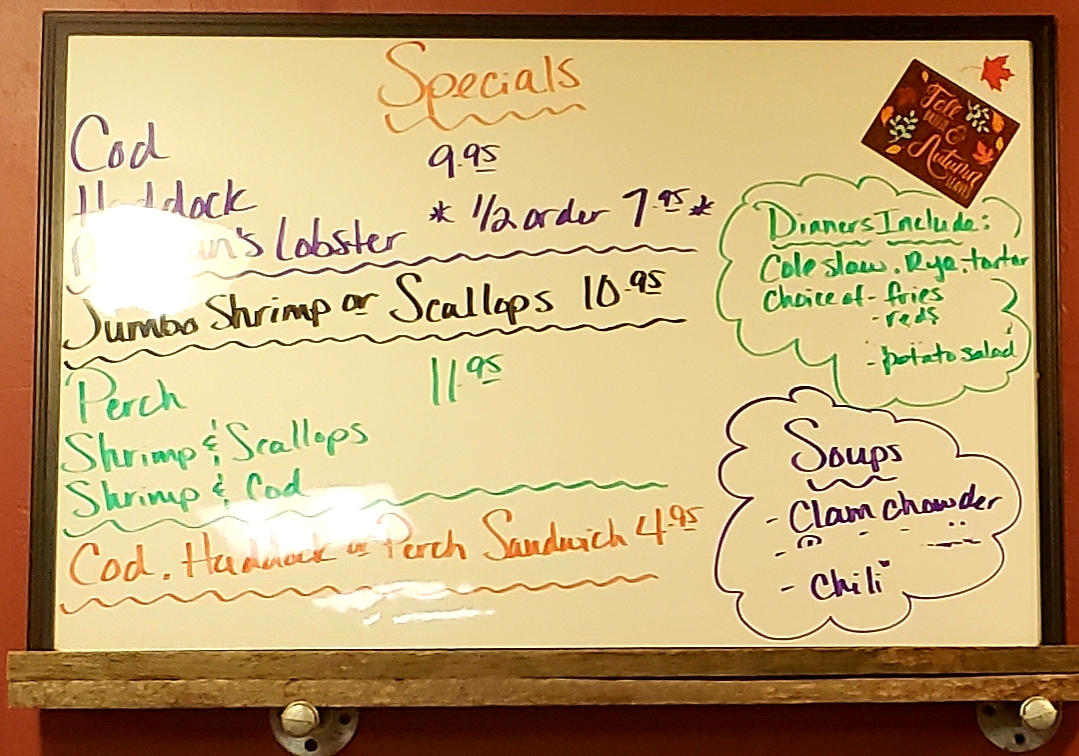 Specials
Cod 9.95
Haddock * 1/2 order 7.95 *
Lobster
Jumbo Shrimp or Scallops 10.95
Perch 11.95
Shrimp & Scallops
Shrimp & Cod
Cod, Haddock or Perch Sandwich 4.95
Fall
&
Autumn
Dinners Include:
Coleslaw, Rye, tartar
Choice of - fries
- reds
- potato salad
Soups
- Clam chowder
- Chili